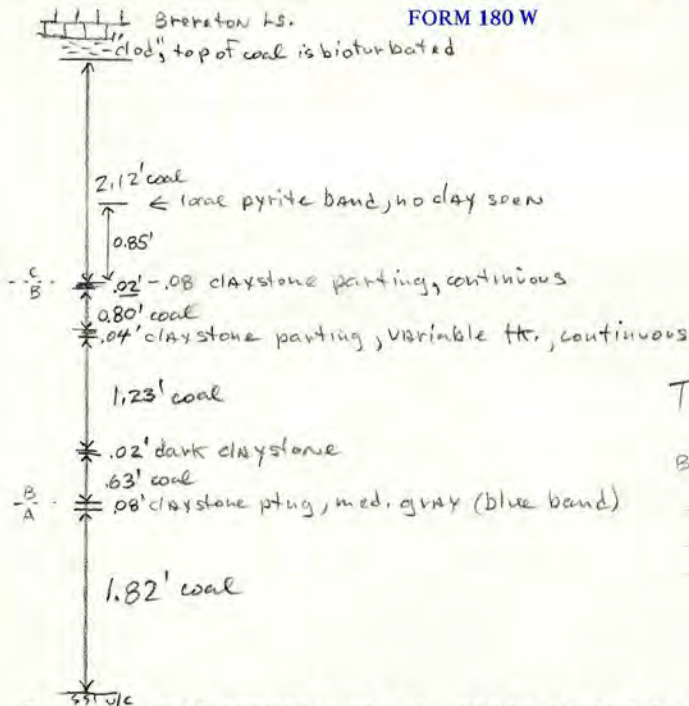 Brereton Ls.
FORM 180 W
"clod", top of coal is bioturbated
2.12' coal
← local pyrite band, no clay seen
0.85'
C
B
.02' - .08 claystone parting, continuous
0.80' coal
.04' claystone parting, variable tk., continuous
1.23' coal
T
.02' dark claystone
B
.63' coal
B
A
.08' claystone ptng, med. gray (blue band)
1.82' coal
u/c